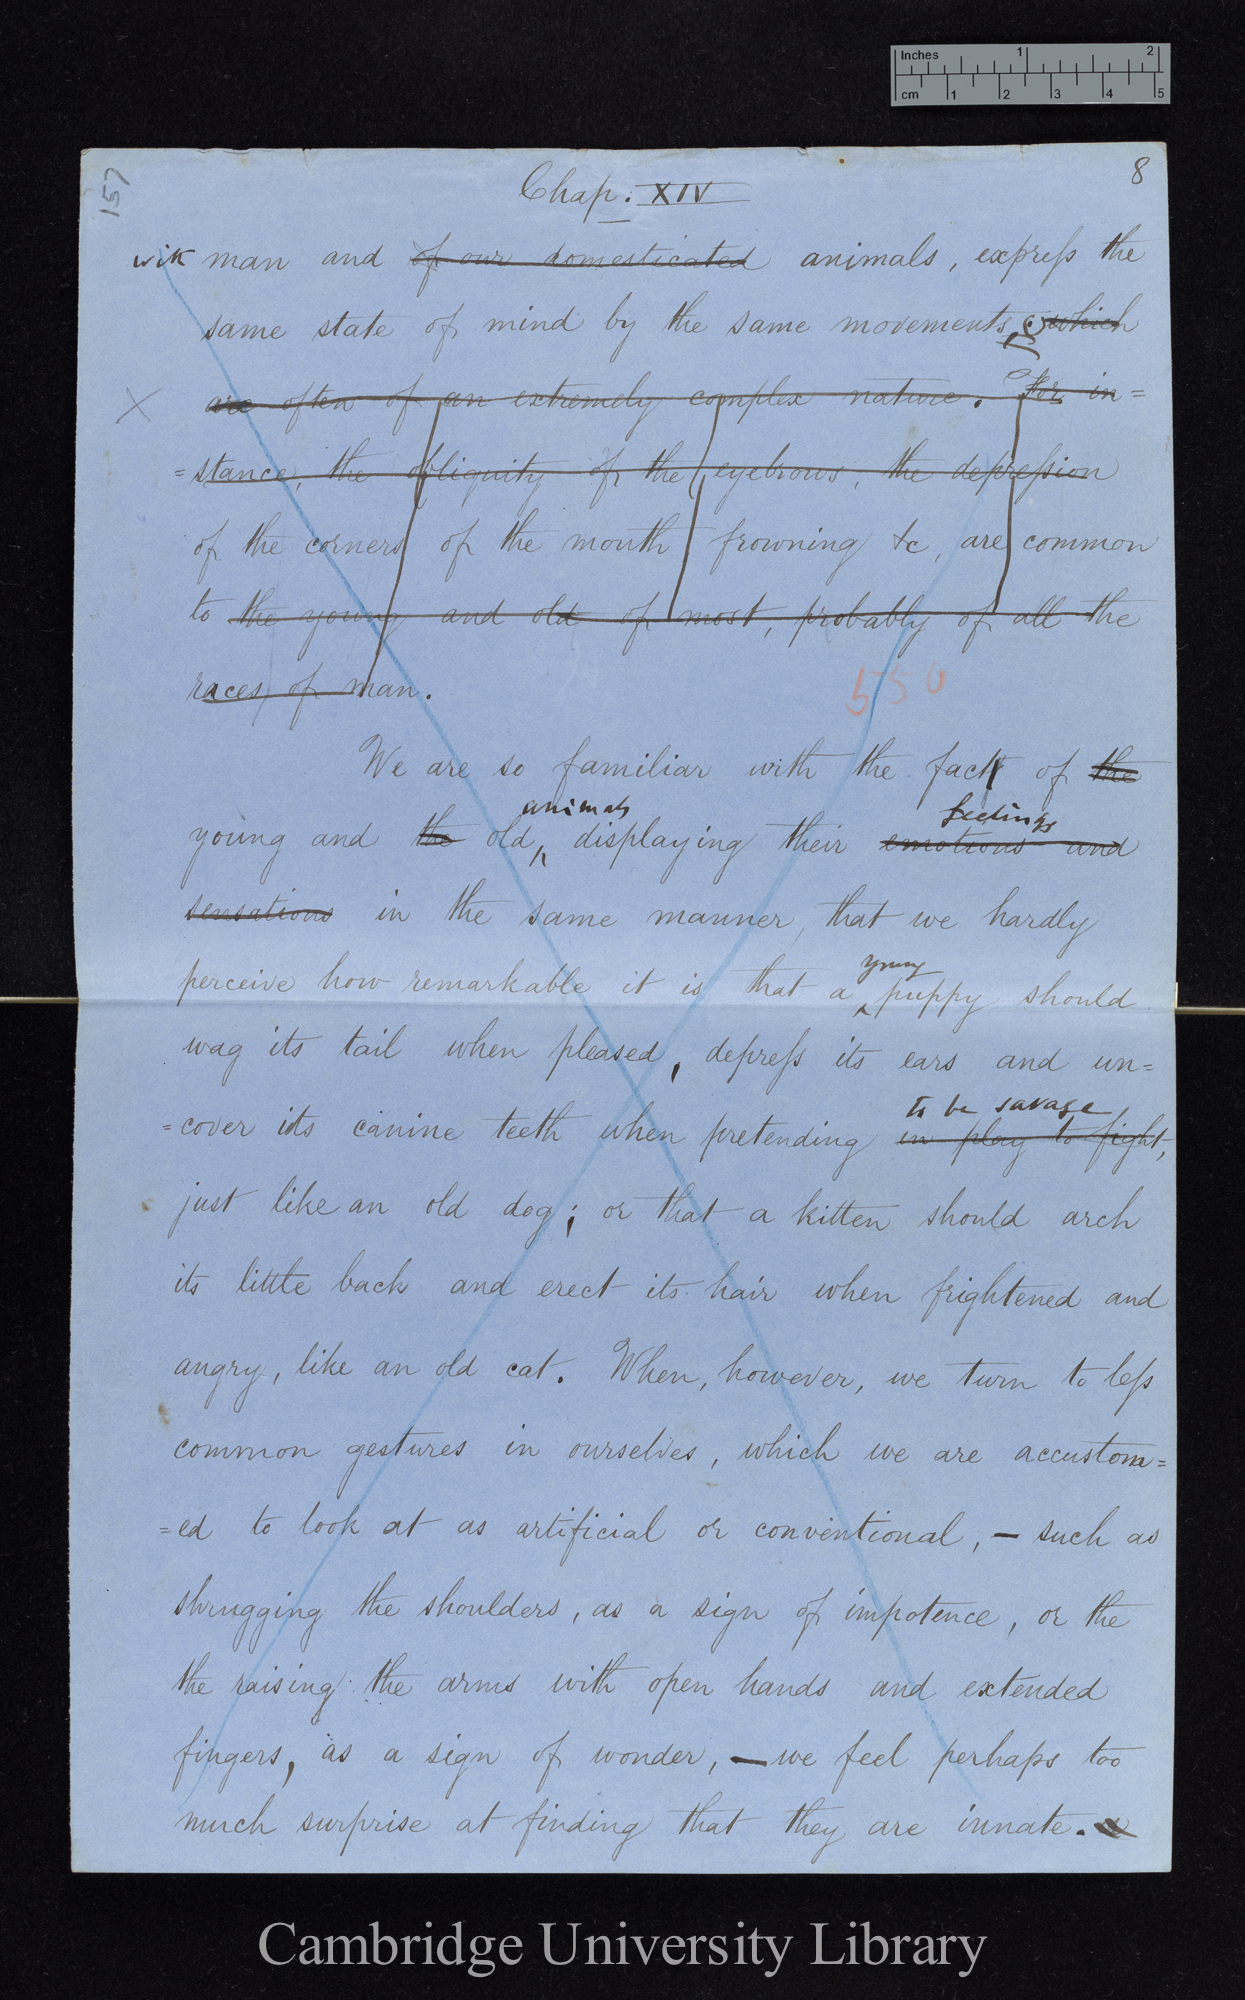 Inches 1 2
cm 1 2 3 4 5
157
8
Chap: XIV
with man and of our domesticated animals, express the
same state of mind by the same movements, which
X are often of an extremely complex nature. For in=
=stance, the obliquity of the eyebrows, the depression
of the corners of the mouth frowning &c, are common
to the young and old of most, probably of all the
races of man.
550
We are so familiar with the fact of the
animals feelings
young and the old, displaying their emotions and
sensations in the same manner, that we hardly
young
perceive how remarkable it is that a puppy should
wag its tail when pleased, depress its ears and un=
to be savage,
=cover its canine teeth when pretending in play to fight,
just like an old dog; or that a kitten should arch
its little back and erect its hair when frightened and
angry, like an old cat. When, however, we turn to less
common gestures in ourselves, which we are accustom=
=ed to look at as artificial or conventional, — such as
shrugging the shoulders, as a sign of impotence, or the
the raising the arms with open hands and extended
fingers, as a sign of wonder, — we feel perhaps too
much surprise at finding that they are innate.
Cambridge University Library